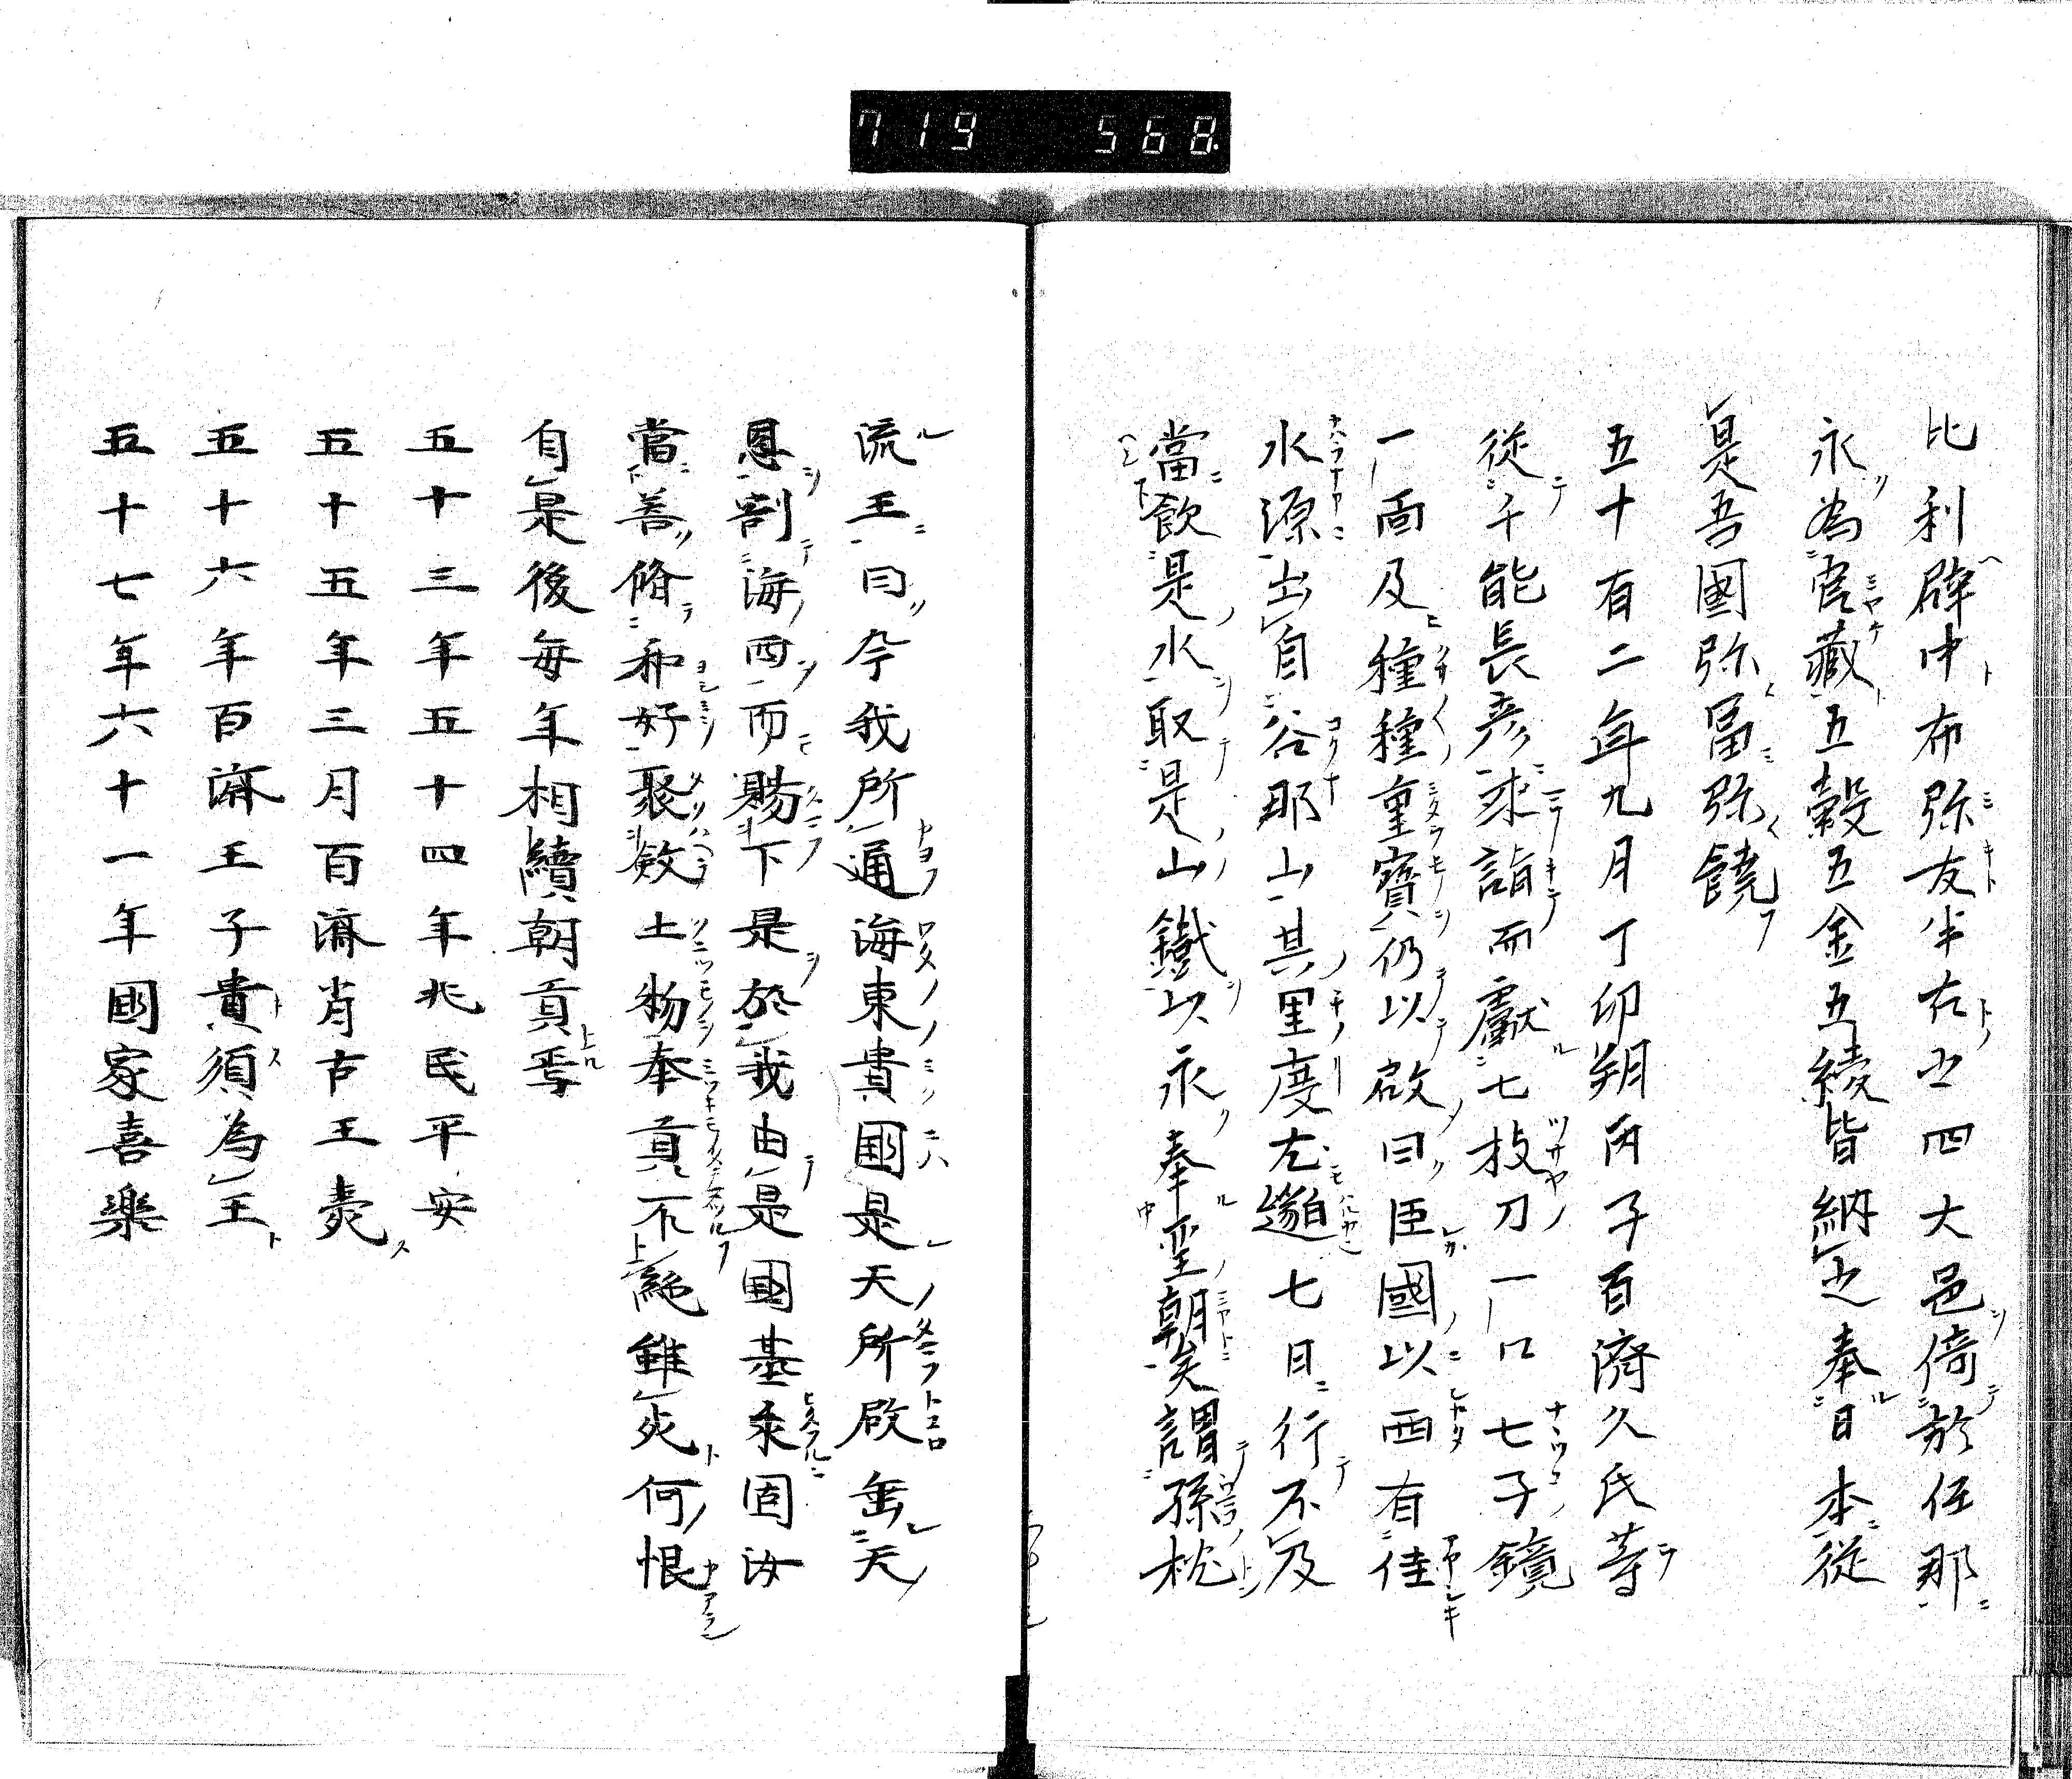 719 568.
比利辟中布弥友半右之四大邑倚於任那
永為官藏五穀五金五綾皆納之奉日本従
是吾國弥冨弥饒
五十有二年九月丁卯朔丙子百済久氐䓁
従千能長彦求詣而獻七枝刀一口七子鏡
一面及種種重寶仍以啟曰臣國以西有佳
水源出自谷那山其里度尤邈七日行不及
當飲是水取是山鐵以永奉聖朝矣謂孫枕
流王曰今我所通海東貴國是天所啟垂天
恩割海西而賜下是於我由是國基永固汝
當善脩和好聚斂土物奉貢不絶雖死何恨
自是後毎年相續朝貢焉
五十三年五十四年兆民平安
五十五年三月百濟肖古王薨
五十六年百濟王子貴須為王
五十七年六十一年國家喜樂